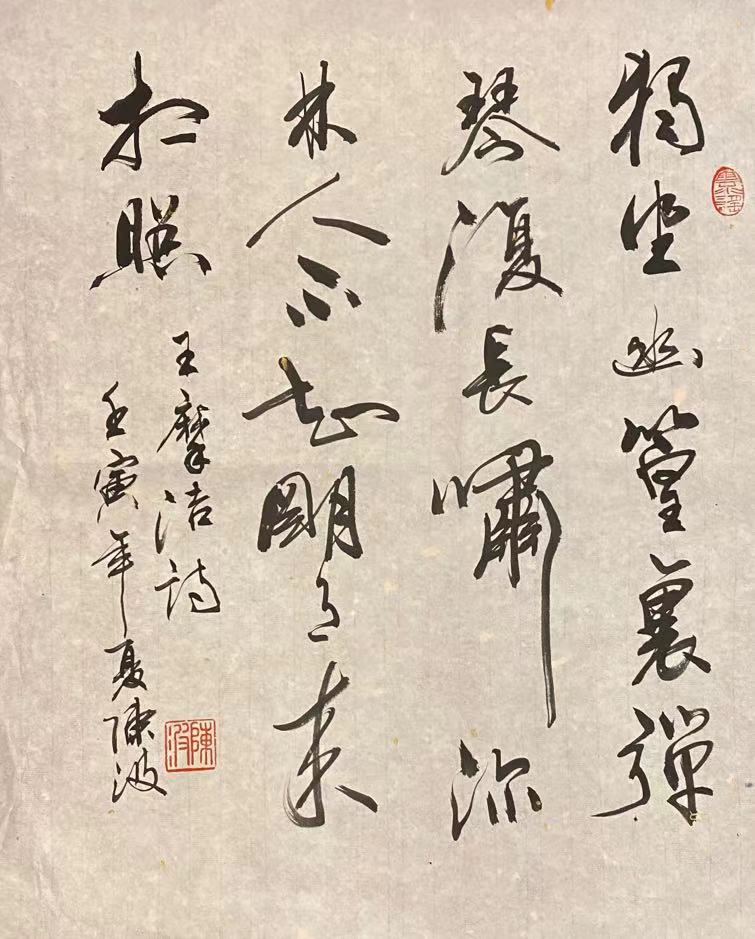 獨坐幽篁裏彈
琴復長嘯深
林人不知明月来
相照
王摩詰詩
壬寅年夏陳波
陳波